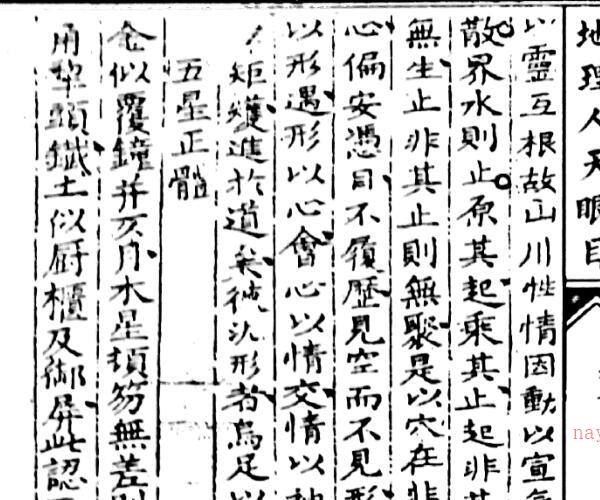 地理人天眼目
以靈互根故山川性情因動以宣
散界水則止原其起乘其止起非其
無生止非其止則無聚是以穴在非
心偏安憑目不履歷見空而不見形
以形遇形以心會心以情交情以神
矩矱進於道矣彼泥形者烏足以
五星正體
金似覆鐘并仄月木星頓笏無差別
用犂頭鑯土似厨櫃及御屏此認
nay